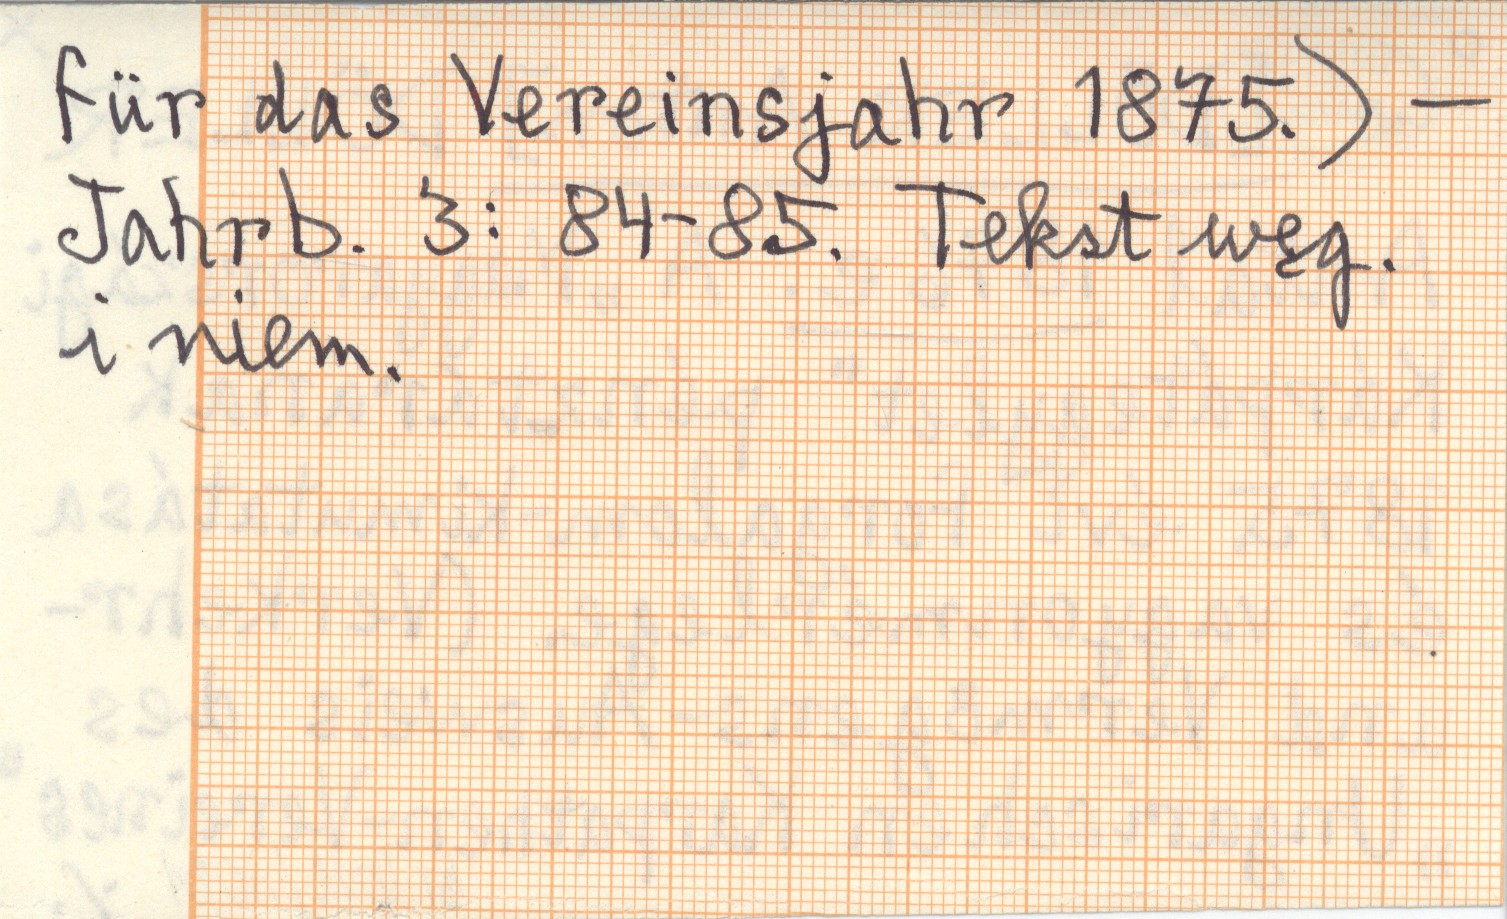 für das Vereinsjahr 1875.) —
Jahrb. 3: 84-85. Tekst węg.
i niem.